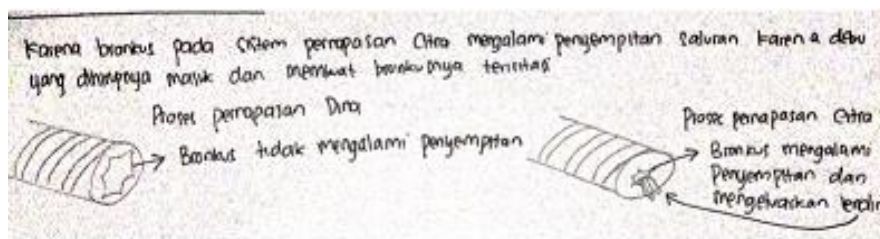 Karena bronkus pada sistem pernapasan Citra mengalami penyempitan saluran karena debu
yang dihirupnya masuk dan membuat bronkusnya teriritasi
Proses pernapasan Dina
Bronkus tidak mengalami penyempitan
Proses pernapasan Citra
Bronkus mengalami
Penyempitan dan
mengeluarkan lendir